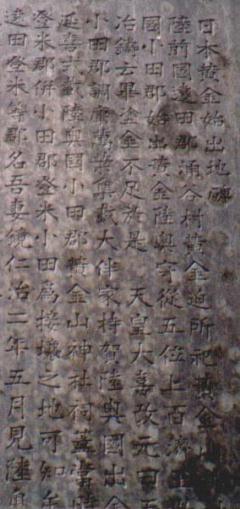 日本黄金始出地碑
陸前國遠田郡涌谷村黄金迫所祀黄金山
國小田郡始出黄金陸奥守從五位上百濟王
冶鑄云畢塗金不足於是　天皇大喜改元曰天
小田郡調庸萬葉集載大伴家持賀陸奥國出金
延喜式載陸奥國小田郡黄金山神社祠蓋當時
登米郡併小田郡登米小田爲接壌之地可知矣
遠田登米等郡名吾妻鏡仁治二年五月見陸奥